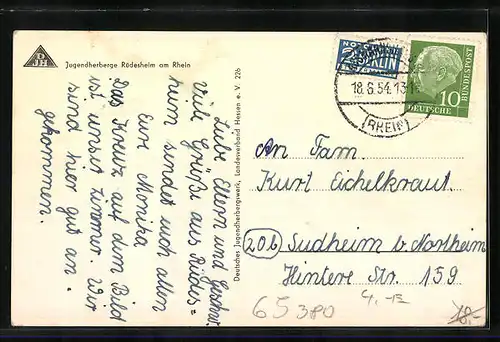 DJH
Jugendherberge Rüdesheim am Rhein
Liebe Eltern und Geschw.
Viele Grüße aus Rüdes=
heim sendet euch allen
Eure Monika
Das Kreuz auf dem Bild
ist unser Zimmer. Wir
sind hier gut an-
gekommen.
Deutsches Jugendherbergswerk, Landesverband Hessen e. V. 226
NOTOPFER
2 BERLIN
STEUERMARKE
18.6.54.13-
(RHEIN)
DEUTSCHE
BUNDESPOST
10
An Fam.
Kurt Eichelkraut.
(20b) Sudheim b. Northeim
Hintere Str. 159
65380
4.-
18,-